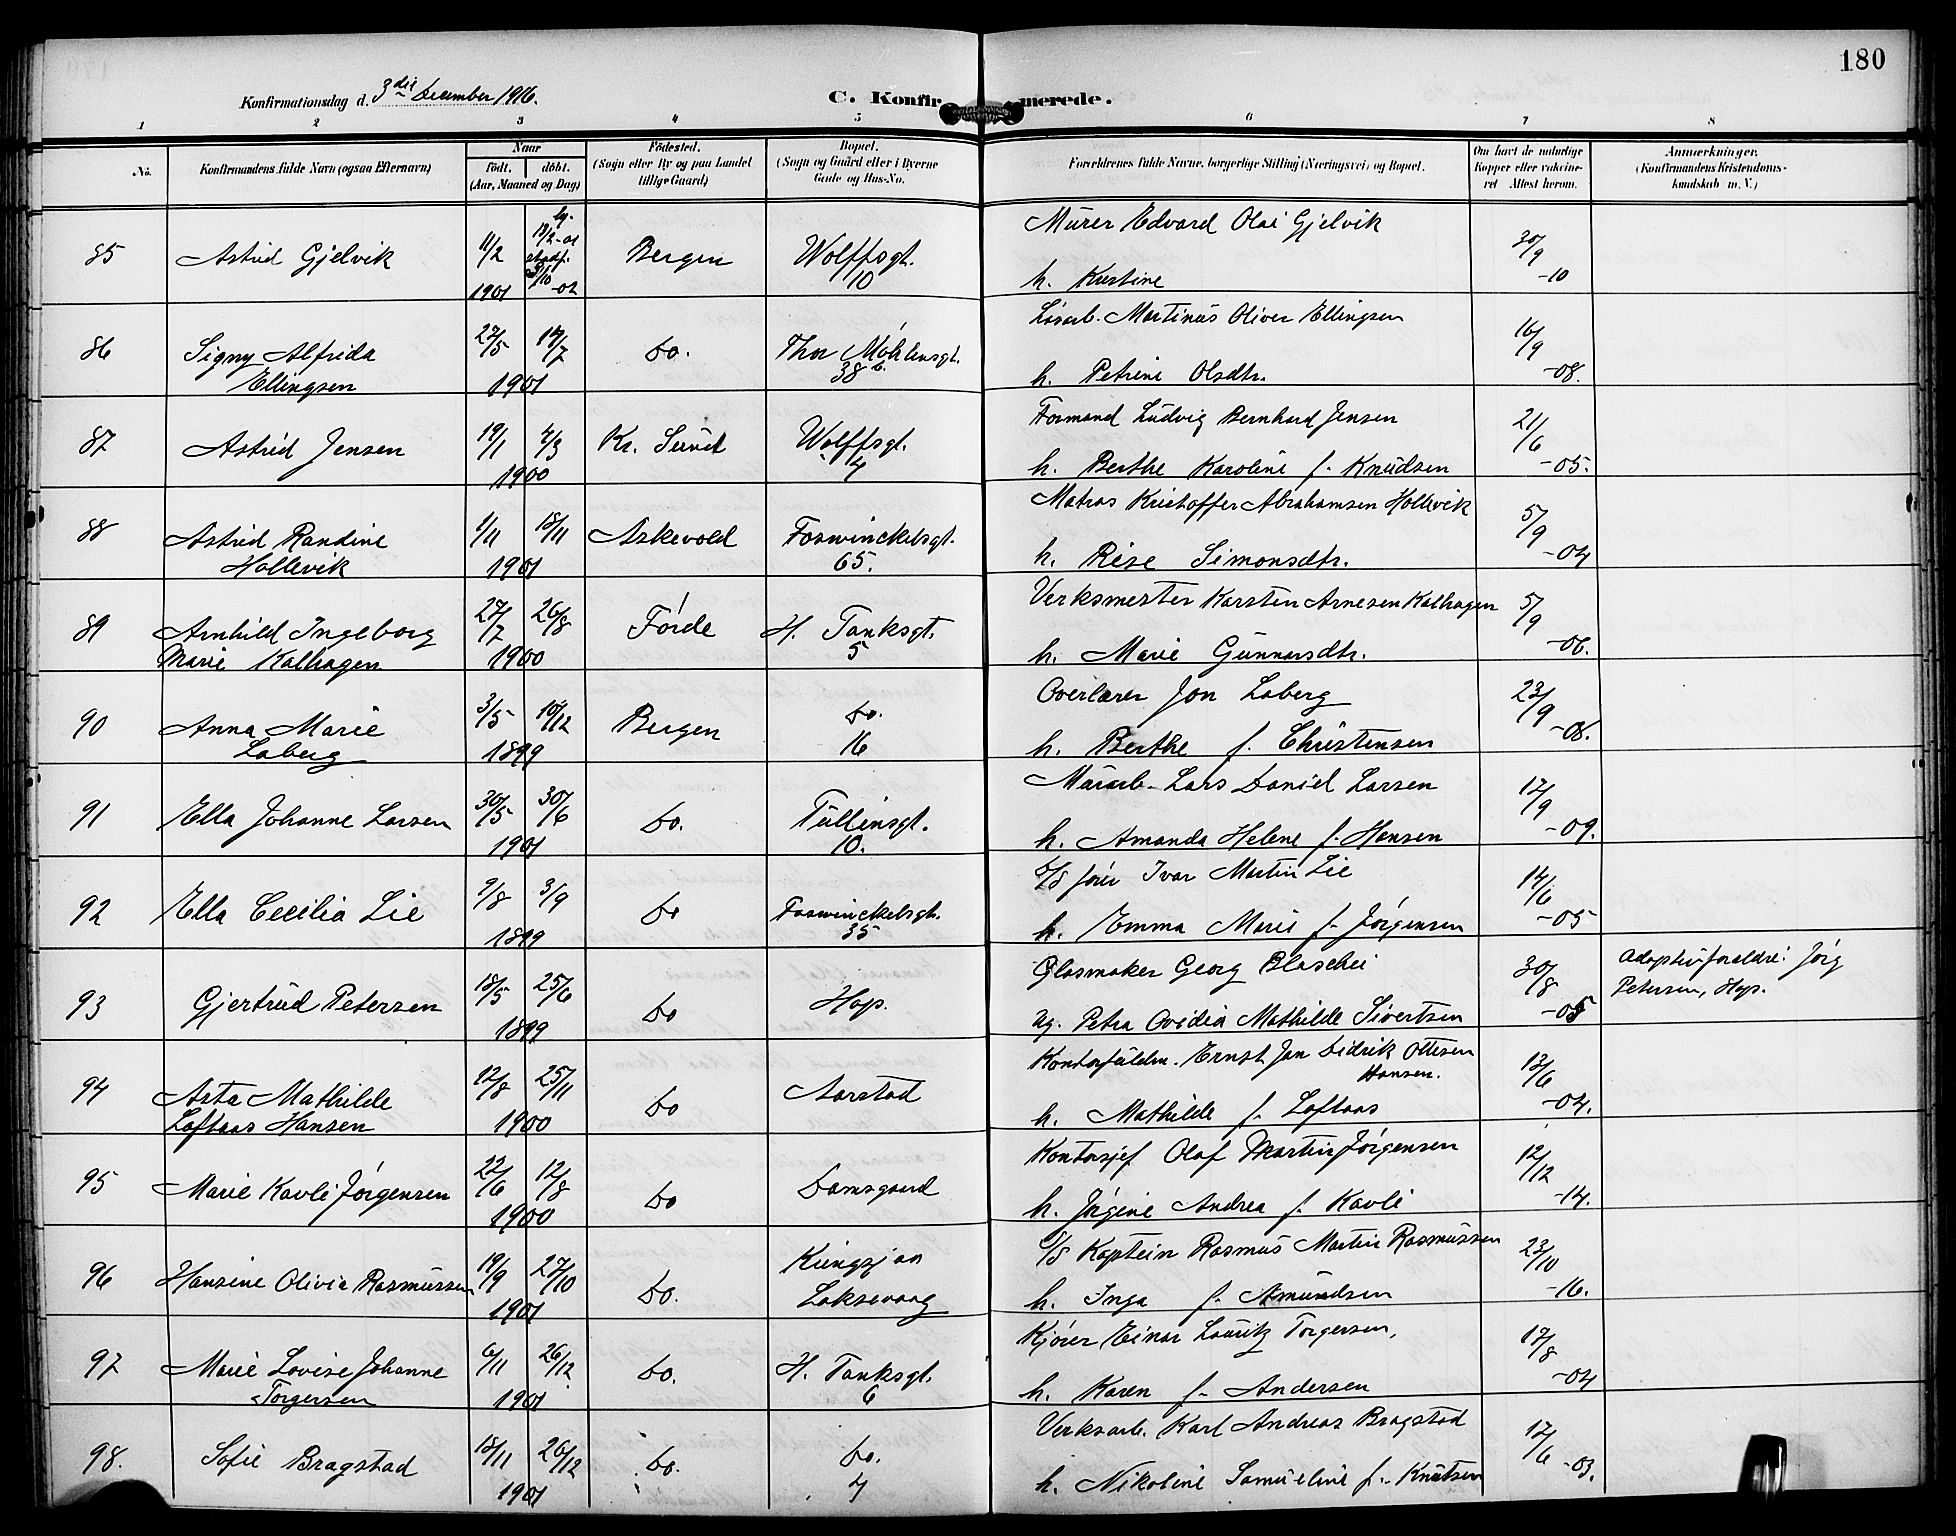 180
Konfirmationsdag d. 3die December 1916.
C. Konfirmerede.
1 2 3 4 5 6 7 8
No. Konfirmandens fulde Navn (ogsaa Efternavn) Naar født. døbt. (Aar, Maaned og Dag) Fødested. (Sogn eller By og paa Landet tillige Gaard) Bopæl. (Sogn og Gaard eller i Byerne Gade og Hus-No. Forældrenes fulde Navne, borgerlige Stilling (Næringsvei) og Bopæl. Om havt de naturlige Kopper eller vaccineret Attest herom. Anmærkninger. (Konfirmandens Kristendomskundskab m. V.)
85 Astrid Gjelvik 11/2 1901 19/2-01 stadf. -02 Bergen Wolffsgt. 10 Murer Edvard Olai Gjelvik
h. Kristine 30/9 -10
86 Signy Alfrida Ellingsen 27/5 14/7 1901 do. Thor Møhlensgt. 38 b. Løsarb. Martinus Oliver Ellingsen
h. Petrine Olsdtr. 16/9 -08.
87 Astrid Jensen 19/1 4/3 1900 Kr. Sund Wolffsgt. 4 Formand Ludvig Bernhard Jensen
h. Berthe Karoline f. Knudsen 21/6 -05.
88 Astrid Randine Hollevik 1/11 18/11 1901 Askevold Foswinckelsgt. 65. Matros Kristoffer Abrahamsen Hollevik
h. Rise Simonsdtr. 5/9 -04
89 Arnhild Ingeborg Marie Kalhagen 27/7 26/8 1900 Førde H. Tanksgt. 5 Verksmester Karsten Arnesen Kalhagen
h. Marie Gunnarsdtr. 5/9 -06.
90 Anna Marie Laberg 3/5 10/12 1899 Bergen do. 16 Overlærer Jon Laberg
h. Berthe f. Christensen 23/9 -08.
91 Ella Johanne Larsen 30/5 30/6 1901 do. Tullinsgt. 10. Murarb. Lars Daniel Larsen
h. Amanda Helene f. Hansen 17/9 -09.
92 Ella Cecilia Lie 9/8 3/9 1899 do Foswinckelsgt. 35 D/S fører Ivar Martin Lie
h. Emma Marie f. Jørgensen 14/6 -05
93 Gjertrud Petersen 18/5 25/6 1899 do Hop. Glasmaker Georg Blaschei
ug. Petra Ovidia Mathilde Sivertsen 30/8 -05 Adoptivforældre: Jørg Petersen, Hop.
94 Asta Mathilde Loftaas Hansen 12/8 25/11 1900 do Aarstad Kontorfuldm. Ernst Jan Didrik Ottesen Hansen.
h. Mathilde f. Loftaas 13/6 -04.
95 Marie Kavli Jørgensen 22/6 12/8 1900 do Damsgaard Kontorsjef Olaf Martin Jørgensen
h. Jørgine Andrea f. Kavli 12/12 -14.
96 Hansine Olivia Rasmussen 19/9 27/10 1901 do. Kringsjaa Laksevaag D/S Kaptein Rasmus Martin Rasmussen
h. Inga f. Amundsen 23/10 -16.
97 Marie Lovise Johanne Torgersen 6/11 26/12 1901 do. H. Tanksgt. 6 Kjører Einar Lauritz Torgersen,
h. Karen f. Andersen 17/8 -04
98. Sofie Bragstad 18/11 26/12 1901 do. do. 7 Verksarb. Karl Andreas Bragstad
h. Nikoline Samueline f. Knutsen 17/6 -03.